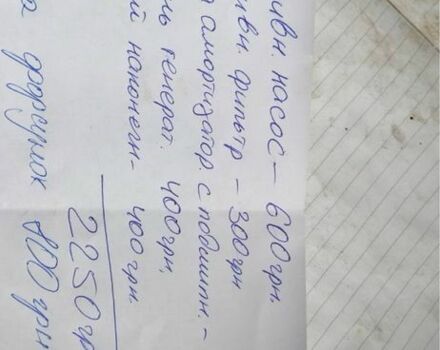 ивн. насос - 600грн.
ивн. фильтр - 300грн
амортизатор. с повшипн. -
ль генерат. 400грн,
й наконечн- 400грн.
2250гр
форсунок 800грн